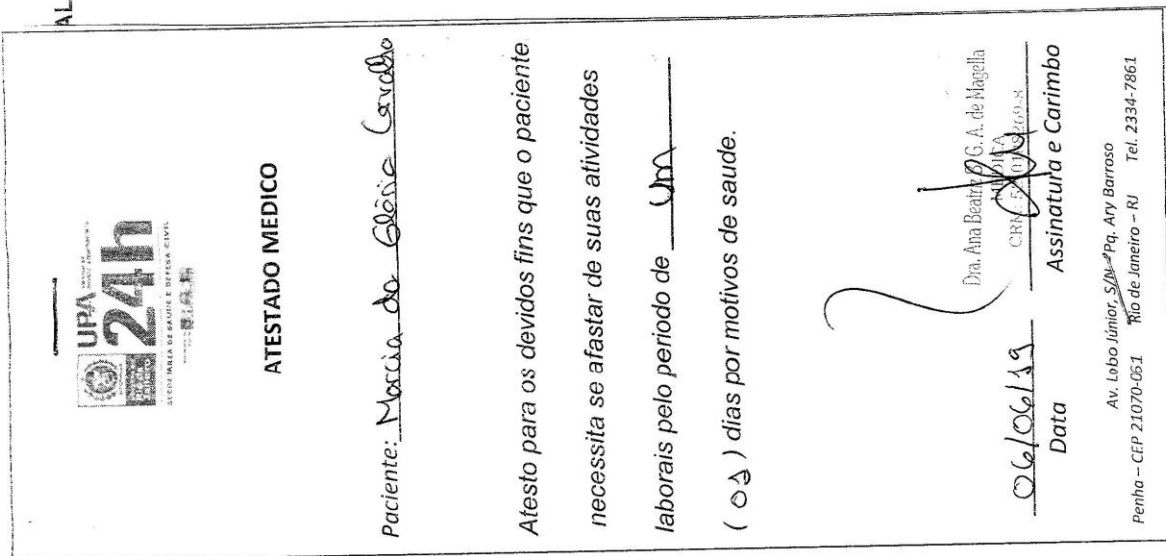 AL
UPA 24h
SECRETARIA DE SAUDE E DEFESA CIVIL
ATESTADO MEDICO
Paciente: Marcia da Glória Carvalho
Atesto para os devidos fins que o paciente
necessita se afastar de suas atividades
laborais pelo periodo de um
( 01 ) dias por motivos de saude.
Dra. Ana Beatriz B. G. A. de Magella
MÉDICA
CRM
06/06/19
Data
Assinatura e Carimbo
Av. Lobo Júnior, S/Nº Pq. Ary Barroso
Penha – CEP 21070-061 Rio de Janeiro – RJ Tel. 2334-7861